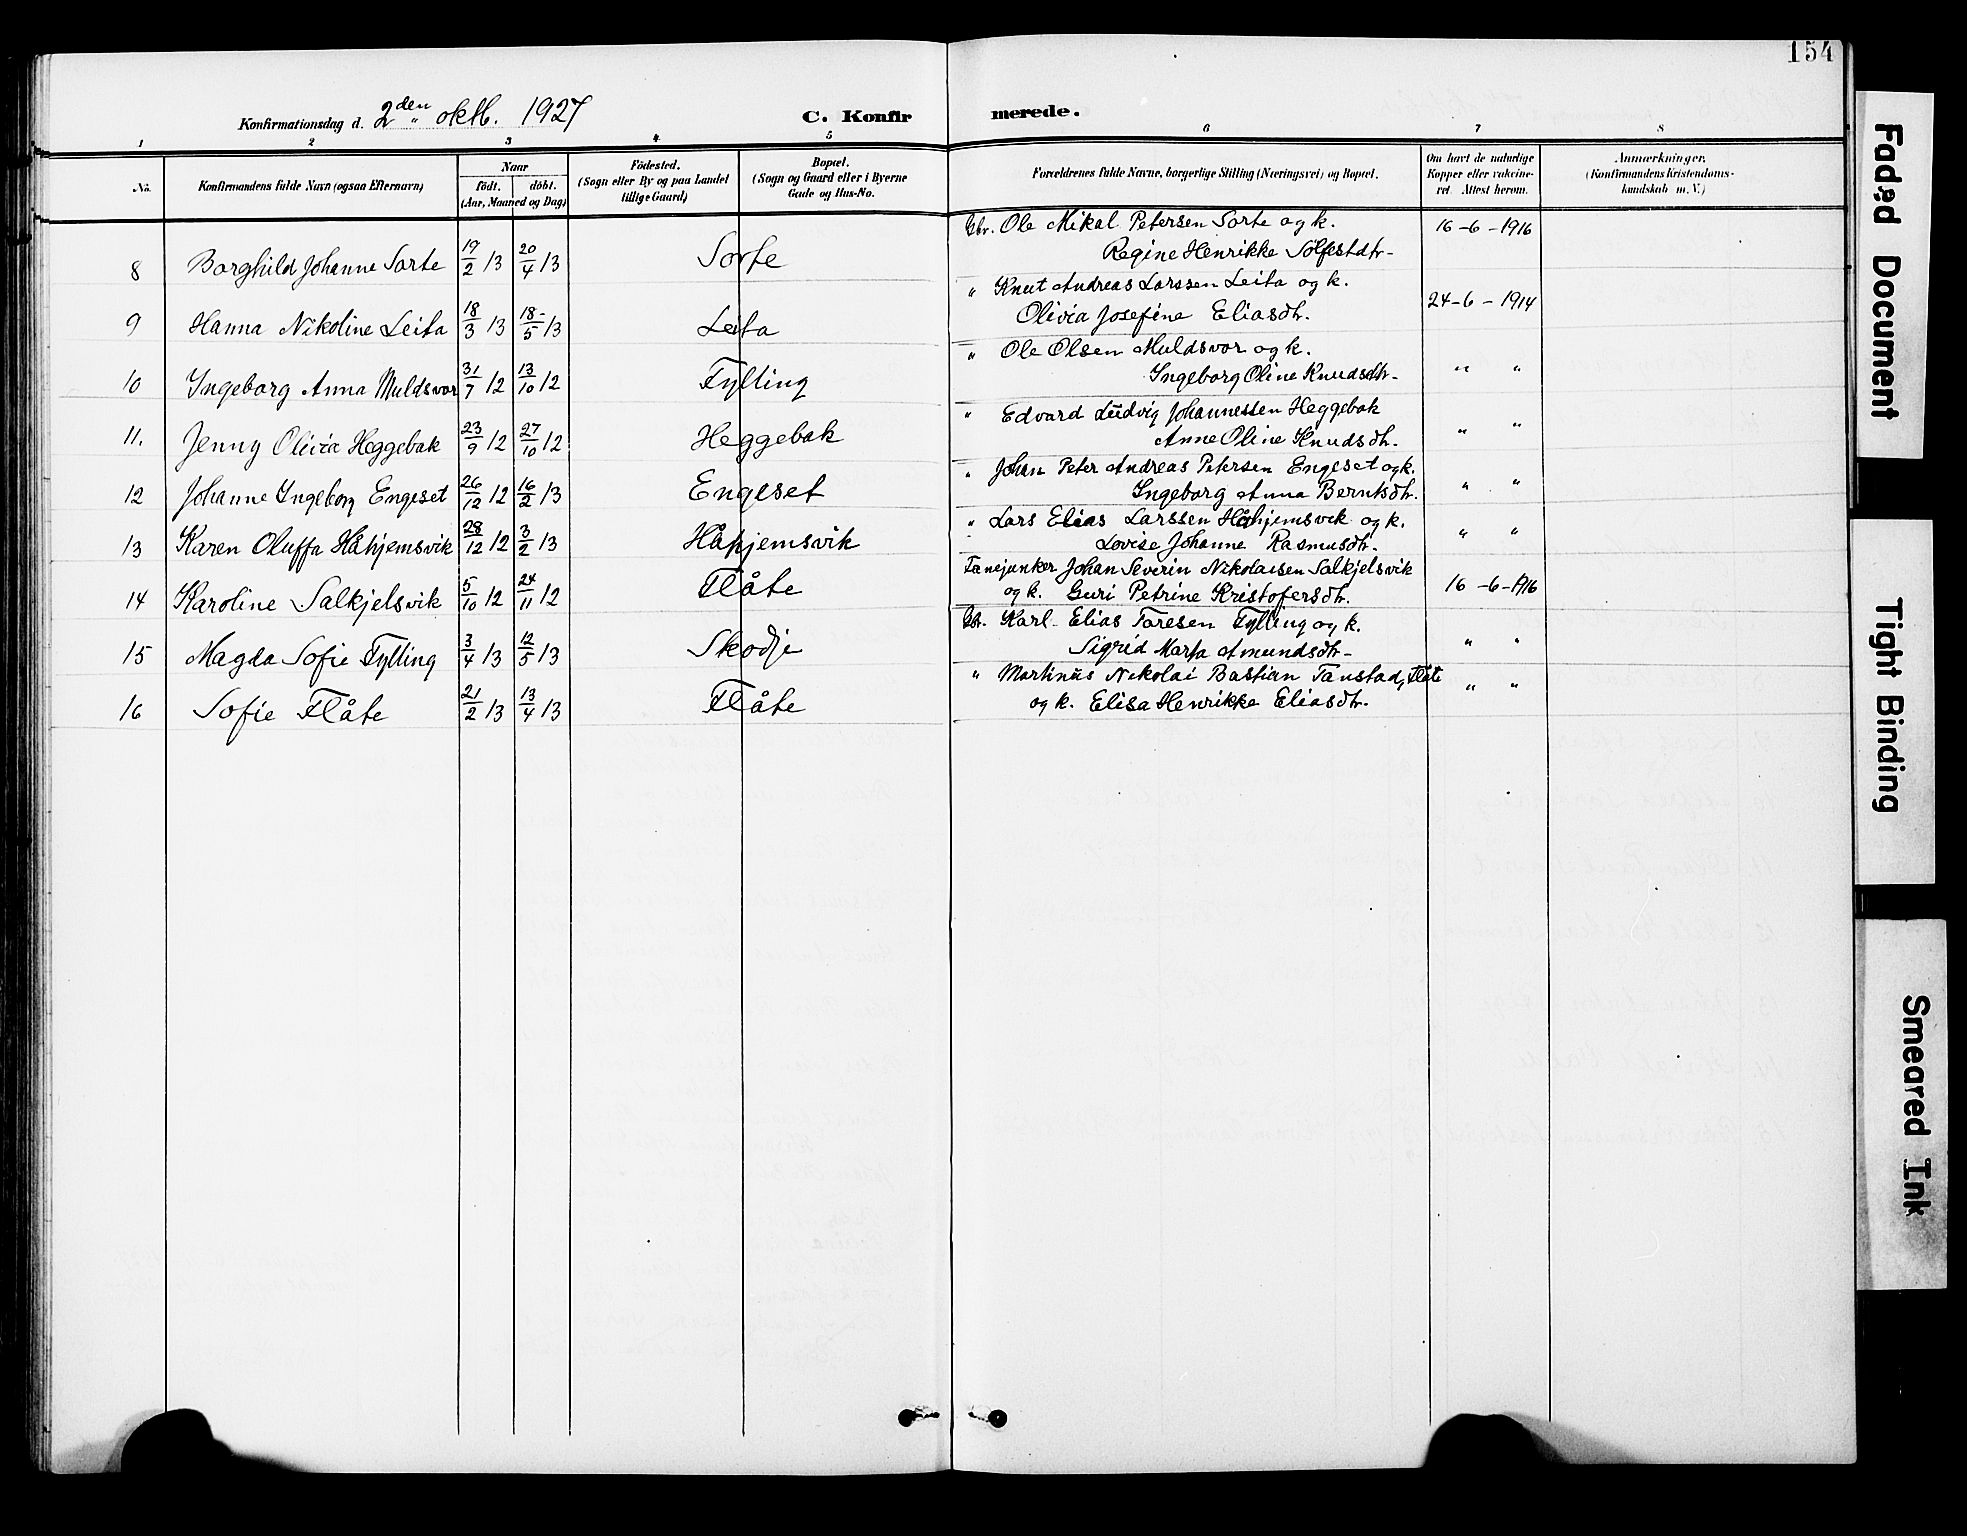 154
Konfirmationsdag d. 2den oktb. 1927 C. Konfirmerede.
1 2 3 4 5 6 7 8
No. Konfirmandens fulde Navn (ogsaa Efternavn) Naar født. døbt. (Aar, Maaned og Dag) Fødested. (Sogn eller By og paa Landet tillige Gaard) Bopæl. (Sogn og Gaard eller i Byerne Gade og Hus-No. Forældrenes fulde Navne, borgerlige Stilling (Næringsvei) og Bopæl. Om havt de naturlige Kopper eller vakcineret. Attest herom. Anmærkninger. (Konfirmandens Kristendomskundskab m. V.)
8 Borghild Johanne Sorte 19/2 13 20/4 13 Sorte Gbr. Ole Mikal Petersen Sorte og k. 16-6-1916
Regine Henrikke Solfestdtr-
9 Hanna Nikoline Leita 18/3 13 18-/5 13 Leita " Knut Andreas Larssen Leita og k.
Olivia Josefine Eliasdtr. 24-6-1914
10 Ingeborg Anna Muldsvor 31/7 12 13/10 12 Fylling " Ole Olsen Muldsvor og k.
Ingeborg Oline Knudsdtr- " "
11. Jenny Olivia Heggebak 23/9 12 27/10 12 Heggebak " Edvard Ludvig Johannessen Heggebak
Anne Oline Knudsdtr. " "
12 Johanne Ingeborg Engeset 26/12 12 16/2 13 Engeset " Johan Peter Andreas Petersen Engeset og k.
Ingeborg Anna Berntsdtr. " "
13 Karen Oluffa Håhjemsvik 28/12 12 3/2 13 Håhjemsvik " Lars Elias Larssen Håhjemsvik og k.
Lovise Johanne Rasmusdtr. " "
14 Karoline Salkjelsvik 5/10 12 24/11 12 Flåte Fanejunker Johan Severin Nikolaisen Salkjelsvik
og k. Guri Petrine Kristofersdtr. 16-6-1916
15 Magda Sofie Fylling 3/4 13 12/5 13 Skodje Gbr. Karl Elias Toresen Fylling og k.
Sigrid Marta Amundsdtr- " "
16 Sofie Flåte 21/2 13 13/4 13 Flåte " Martinus Nikolai Bastian Tanstad, Flåte
og k. Elisa Henrikke Eliasdtr. " "
Faded Document
Tight Binding
Smeared Ink